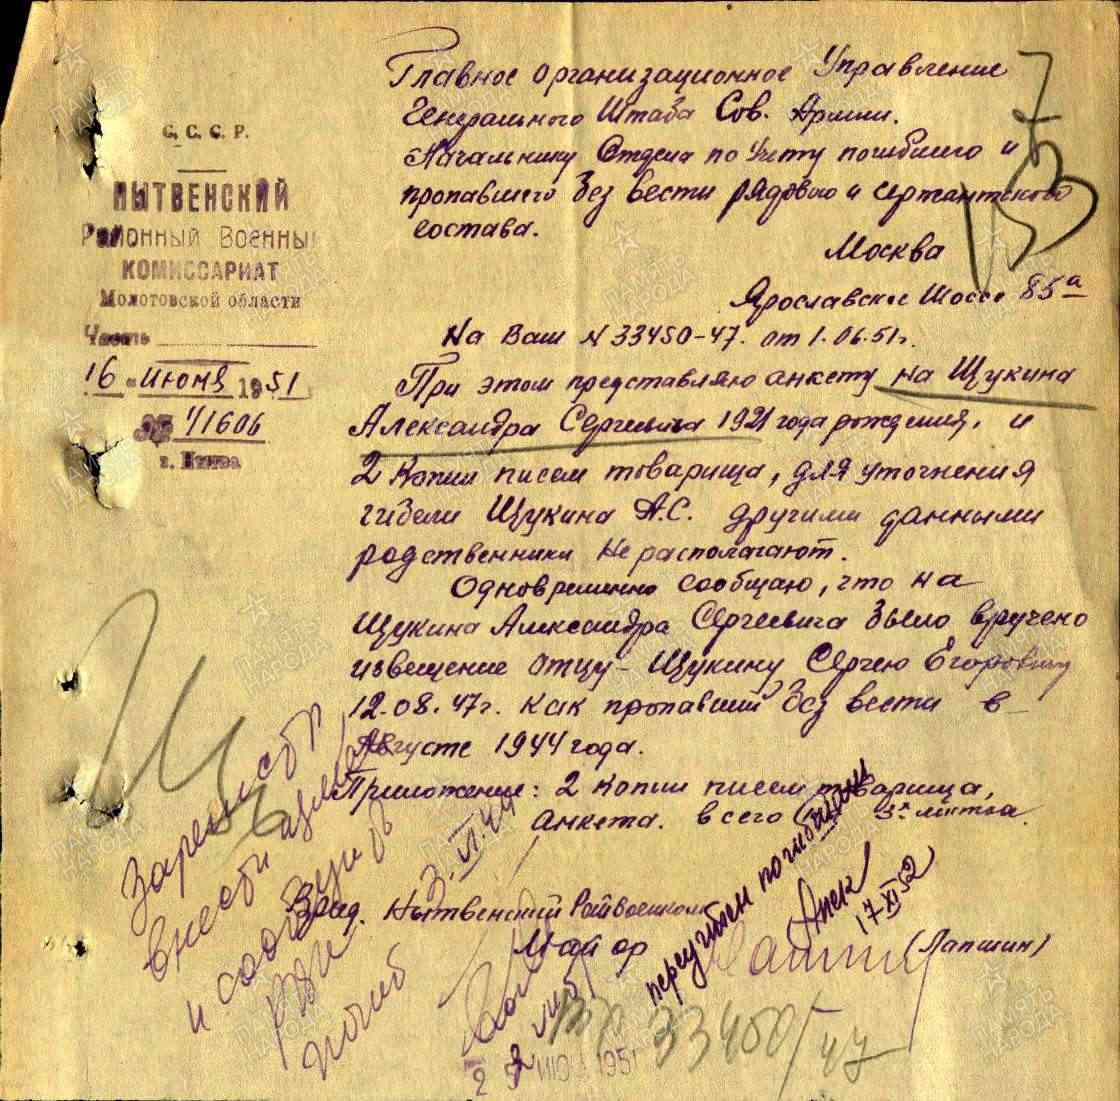 С. С. С. Р.
НЫТВЕНСКИЙ
Районный Военный
КОМИССАРИАТ
Молотовской области
Часть
16 "июня 1951
41606
г. Нытва
Главное организационное Управление
Генерального Штаба Сов. Армии.
Начальнику Отдела по учету погибшего и
пропавшего без вести рядового и сержантского
состава.
Москва
Ярославское шоссе 85а
На Ваш N 33450-47. от 1.06.51г.
При этом представляю анкету на Щукина
Александра Сергеевича 1921 года рождения, и
2 копии писем товарища, для уточнения
гибели Щукина А.С. другими данными
родственники не располагают.
Одновременно сообщаю, что на
Щукина Александра Сергеевича было вручено
извещение отцу - Щукину Сергею Егоровичу
12.08.47г. как пропавший без вести в
Августе 1944 года.
Приложение: 2 копии писем товарища,
анкета. всего 3 листа.
Врид. Нытвенский Райвоенком
Майор
(Лапшин)
внести
и
погиб
3.VII.44
переучтен погибшим
17 XI 52
33450/47
1951